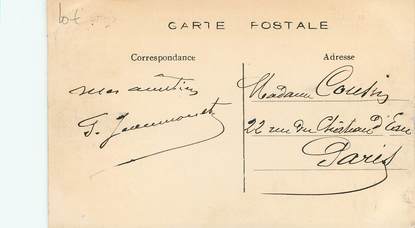 Lot
CARTE POSTALE
Correspondance
Adresse
mes amitiés
G.
Madame Cousin
22 rue du Château d'Eau
Paris